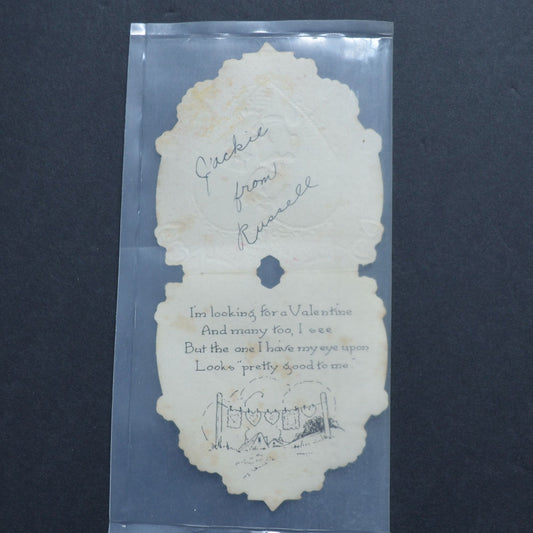 Jackie
from
Russell
I'm looking for a Valentine
And many too, I see
But the one I have my eye upon
Looks "pretty good to me"